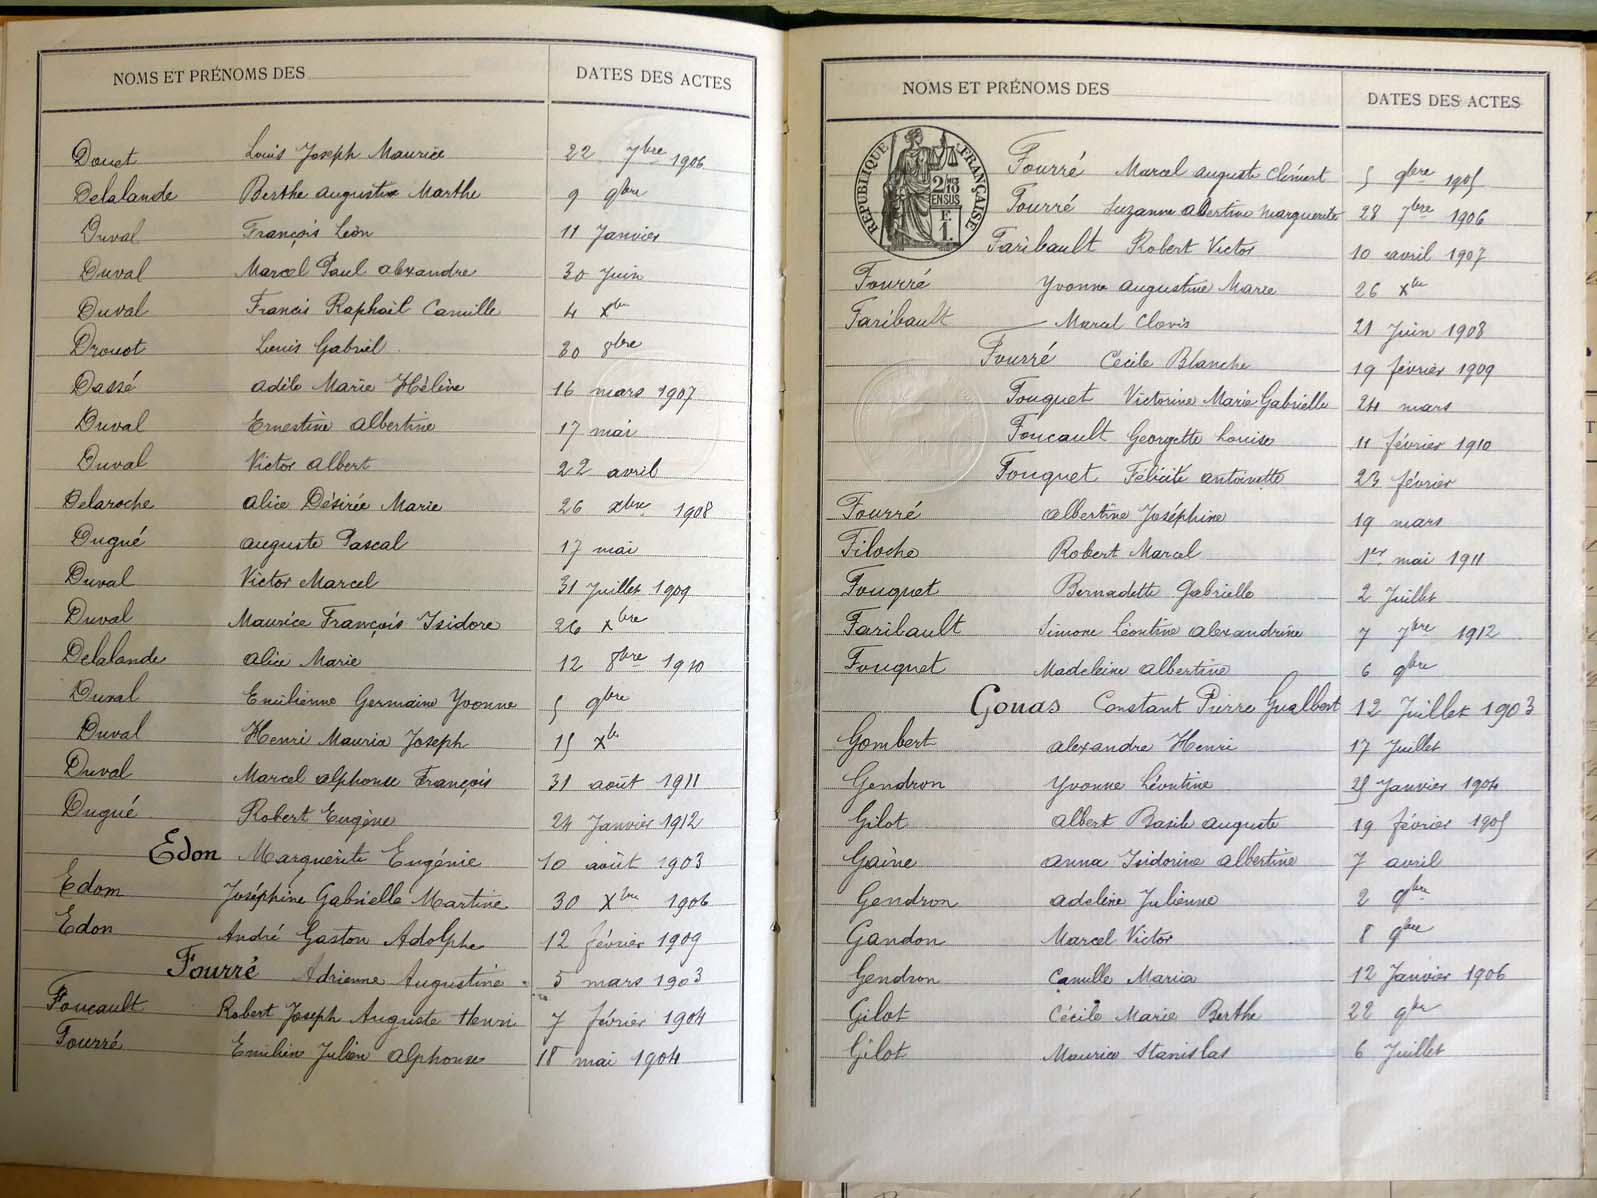 NOMS ET PRÉNOMS DES DATES DES ACTES
Douet Louis Joseph Maurice 22 7bre 1906
Delalande Berthe Augustine Marthe 9 9bre
Duval François Léon 11 Janvier
Duval Marcel Paul Alexandre 30 Juin
Duval Francis Raphaël Camille 4 Xbre
Drouot Louis Gabriel 30 8bre
Dassé Adèle Marie Hélène 16 mars 1907
Duval Ernestine Albertine 17 mai
Duval Victor Albert 22 avril
Delaroche Alice Désirée Marie 26 xbre 1908
Dugué Auguste Pascal 17 mai
Duval Victor Marcel 31 Juillet 1909
Duval Maurice François Isidore 26 xbre
Delalande Alice Marie 12 8bre 1910
Duval Emilienne Germaine Yvonne 5 9bre
Duval Henri Maurice Joseph 15 Xbre
Duval Marcel Alphonse François 31 août 1911
Dugué Robert Eugène 24 Janvier 1912
Edon Marguerite Eugénie 10 août 1903
Edom Joséphine Gabrielle Martine 30 Xbre 1906
Edon André Gaston Adolphe 12 février 1909
Fourré Adrienne Augustine 5 mars 1903
Foucault Robert Joseph Auguste Henri 7 février 1904
Fourré Emilien Julien Alphonse 18 mai 1904
NOMS ET PRÉNOMS DES DATES DES ACTES
RÉPUBLIQUE FRANÇAISE
2/10
EN SUS
1 F.
Fourré Marcel Auguste Clément 5 9bre 1905
Fourré Suzanne Albertine Marguerite 28 7bre 1906
Faribault Robert Victor 10 avril 1907
Fourré Yvonne Augustine Marie 26 xbre
Faribault Marcel Clovis 21 Juin 1908
Fourré Cécile Blanche 19 février 1909
Fouquet Victorine Marie Gabrielle 24 mars
Foucault Georgette Louise 11 février 1910
Fouquet Félicité Antoinette 23 février
Fourré Albertine Joséphine 19 mars
Filoche Robert Marcel 1er mai 1911
Fouquet Bernadette Gabrielle 2 Juillet
Faribault Simone Léontine Alexandrine 7 7bre 1912
Fouquet Madeleine Albertine 6 9bre
Gouas Constant Pierre Gualbert 12 Juillet 1903
Gombert Alexandre Henri 17 Juillet
Gendron Yvonne Léontine 25 Janvier 1904
Gilot Albert Basile Auguste 19 février 1905
Gaine Anna Isidorine Albertine 7 avril
Gendron Adeline Julienne 2 9bre
Gandon Marcel Victor 8 9bre
Gendron Camille Maria 12 Janvier 1906
Gilot Cécile Marie Berthe 22 9bre
Gilot Maurice Stanislas 6 Juillet